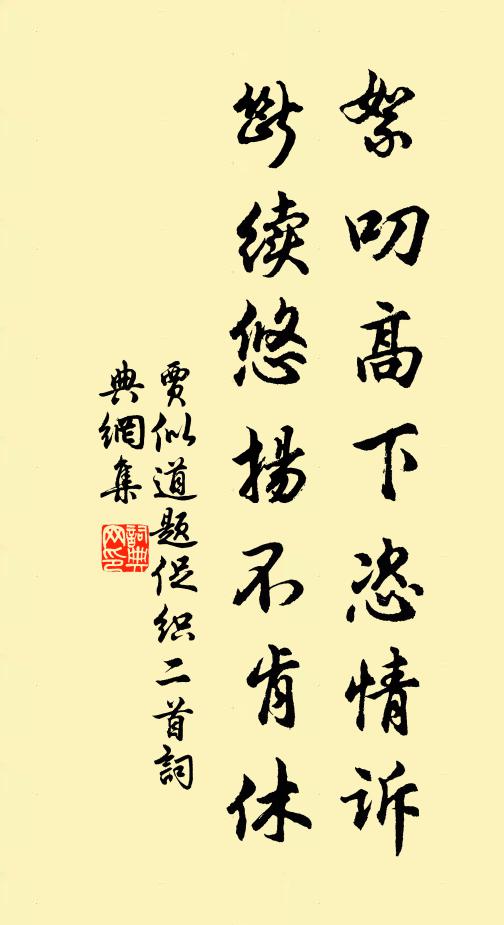 絮叨高下恣情诉
断续悠揚不肯休
賈似道題促织二首詞
典網集
詞典网印